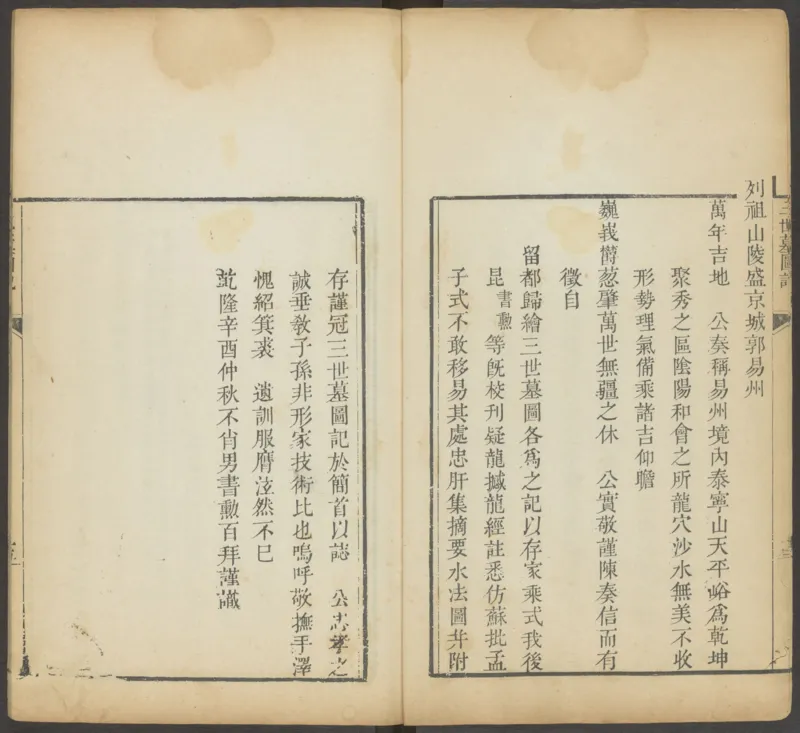 三世墓圖記
列祖山陵盛京城郭易州
萬年吉地　公奏稱易州境內泰寧山天平峪為乾坤
聚秀之區陰陽和會之所龍穴沙水無美不收
形勢理氣備乘諸吉仰瞻
巍峩欝葱肇萬世無疆之休　公實敬謹陳奏信而有
徵自
留都歸繪三世墓圖各為之記以存家乘式我後
昆書勲等旣校刊疑龍撼龍經註悉仿蘇批孟
子式不敢移易其處忠肝集摘要水法圖幷附
存謹冠三世墓圖記於簡首以誌　公忠孝之
誠垂敎子孫非形家技術比也嗚呼敬撫手澤
愧紹箕裘　遺訓服膺泫然不巳
乾隆辛酉仲秋不肖男書勲百拜謹識